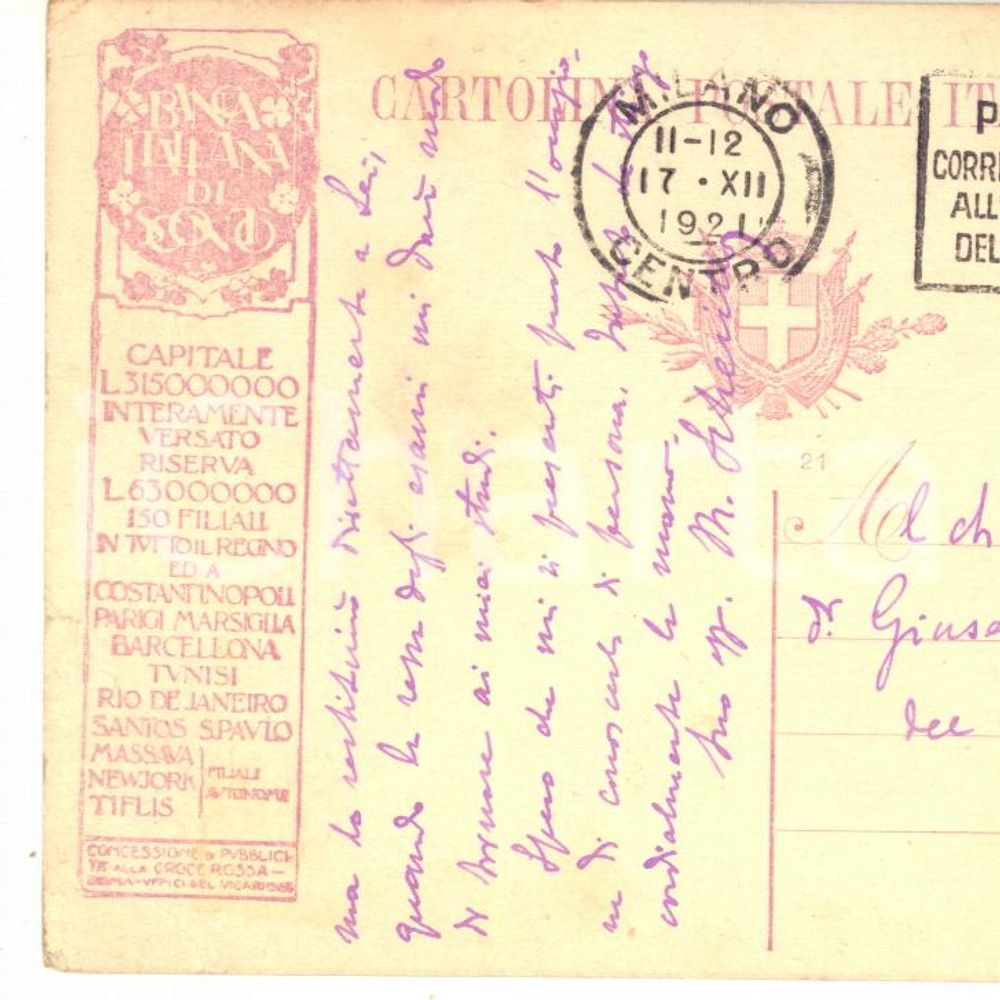 BANCA
ITALIANA
DI
SCONTO
CAPITALE
L.315000000
INTERAMENTE
VERSATO
RISERVA
L.63000000
150 FILIALI
IN TVTTO IL REGNO
ED A
COSTANTINOPOLI
PARIGI MARSIGLIA
BARCELLONA
TVNISI
RIO DE JANEIRO
SANTOS S.PAVLO
MASSAVA
NEWJORK
TIFLIS
FILIALI
AVTONOME
CONCESSIONE PVBBLICI-
TÀ ALLA CROCE ROSSA-
CARTOLINA POSTALE IT
MILANO
11-12
17 • XII
1921
CENTRO
P
CORRI
ALL
DEL
21
ma la restituirò direttamente a Lei,
quando la ressa degli esami mi darà modo
di tornare ai miei studi.
Spero che mi si presenti presto l'occasio-
ne di conoscerla di persona.
cordialmente la mano.
Suo
Al ch
Dr. Gius
del